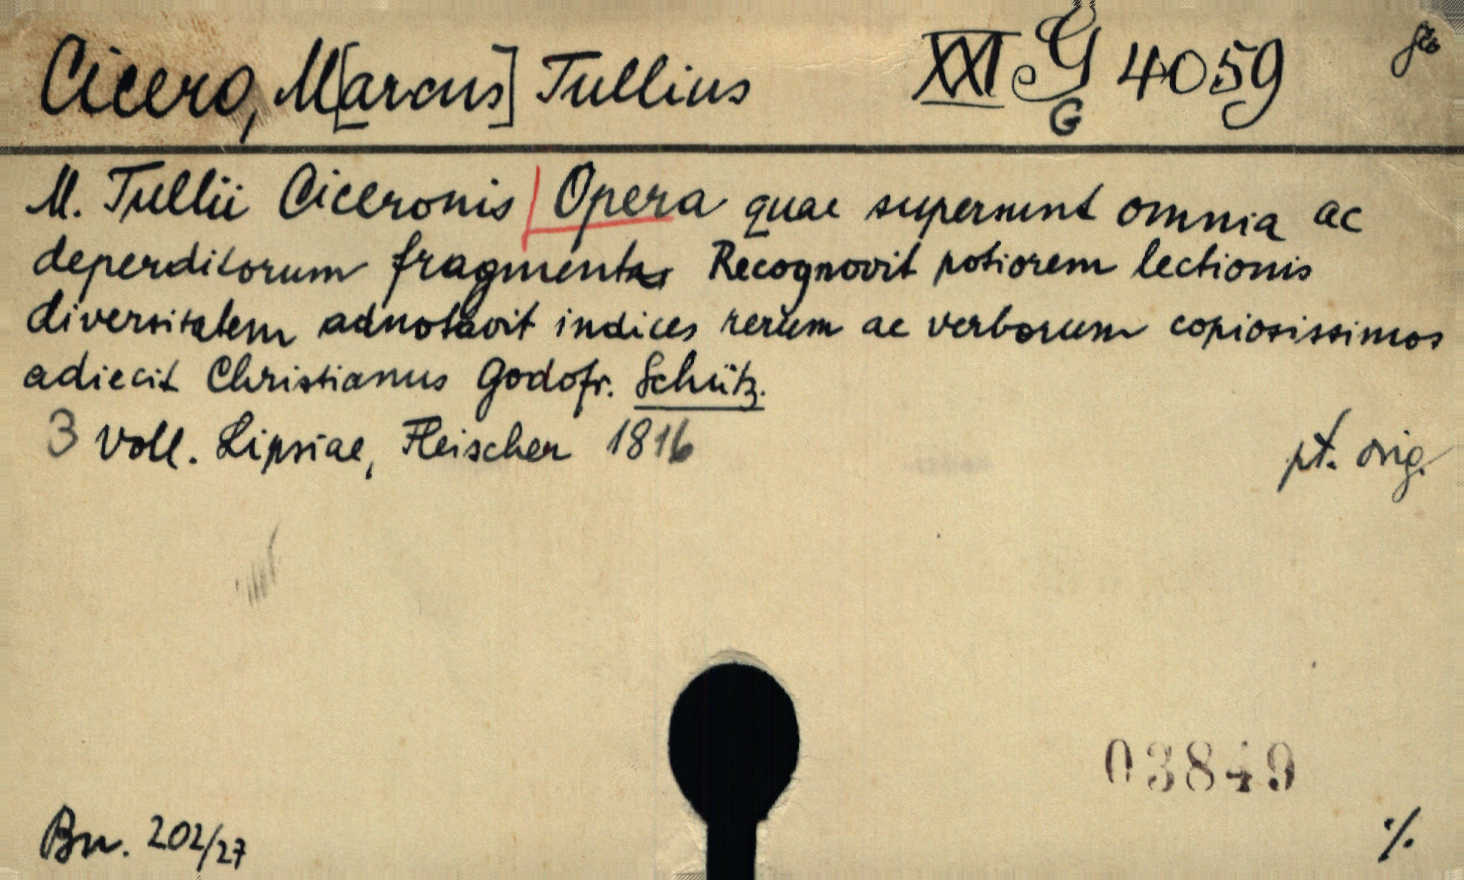 Cicero, M[arcus] Tullius XXI G 4059
G
M. Tullii Ciceronis Opera quae supersunt omnia ac
deperditorum fragmenta Recognovit potiorem lectionis
diversitatem adnotavit indices rerum ac verborum copiosissimos
adiecit Christianus Godofr. Schütz.
3 Voll. Lipsiae, Fleischer 1816
pt. orig.
03849
Bn. 202/27
./.